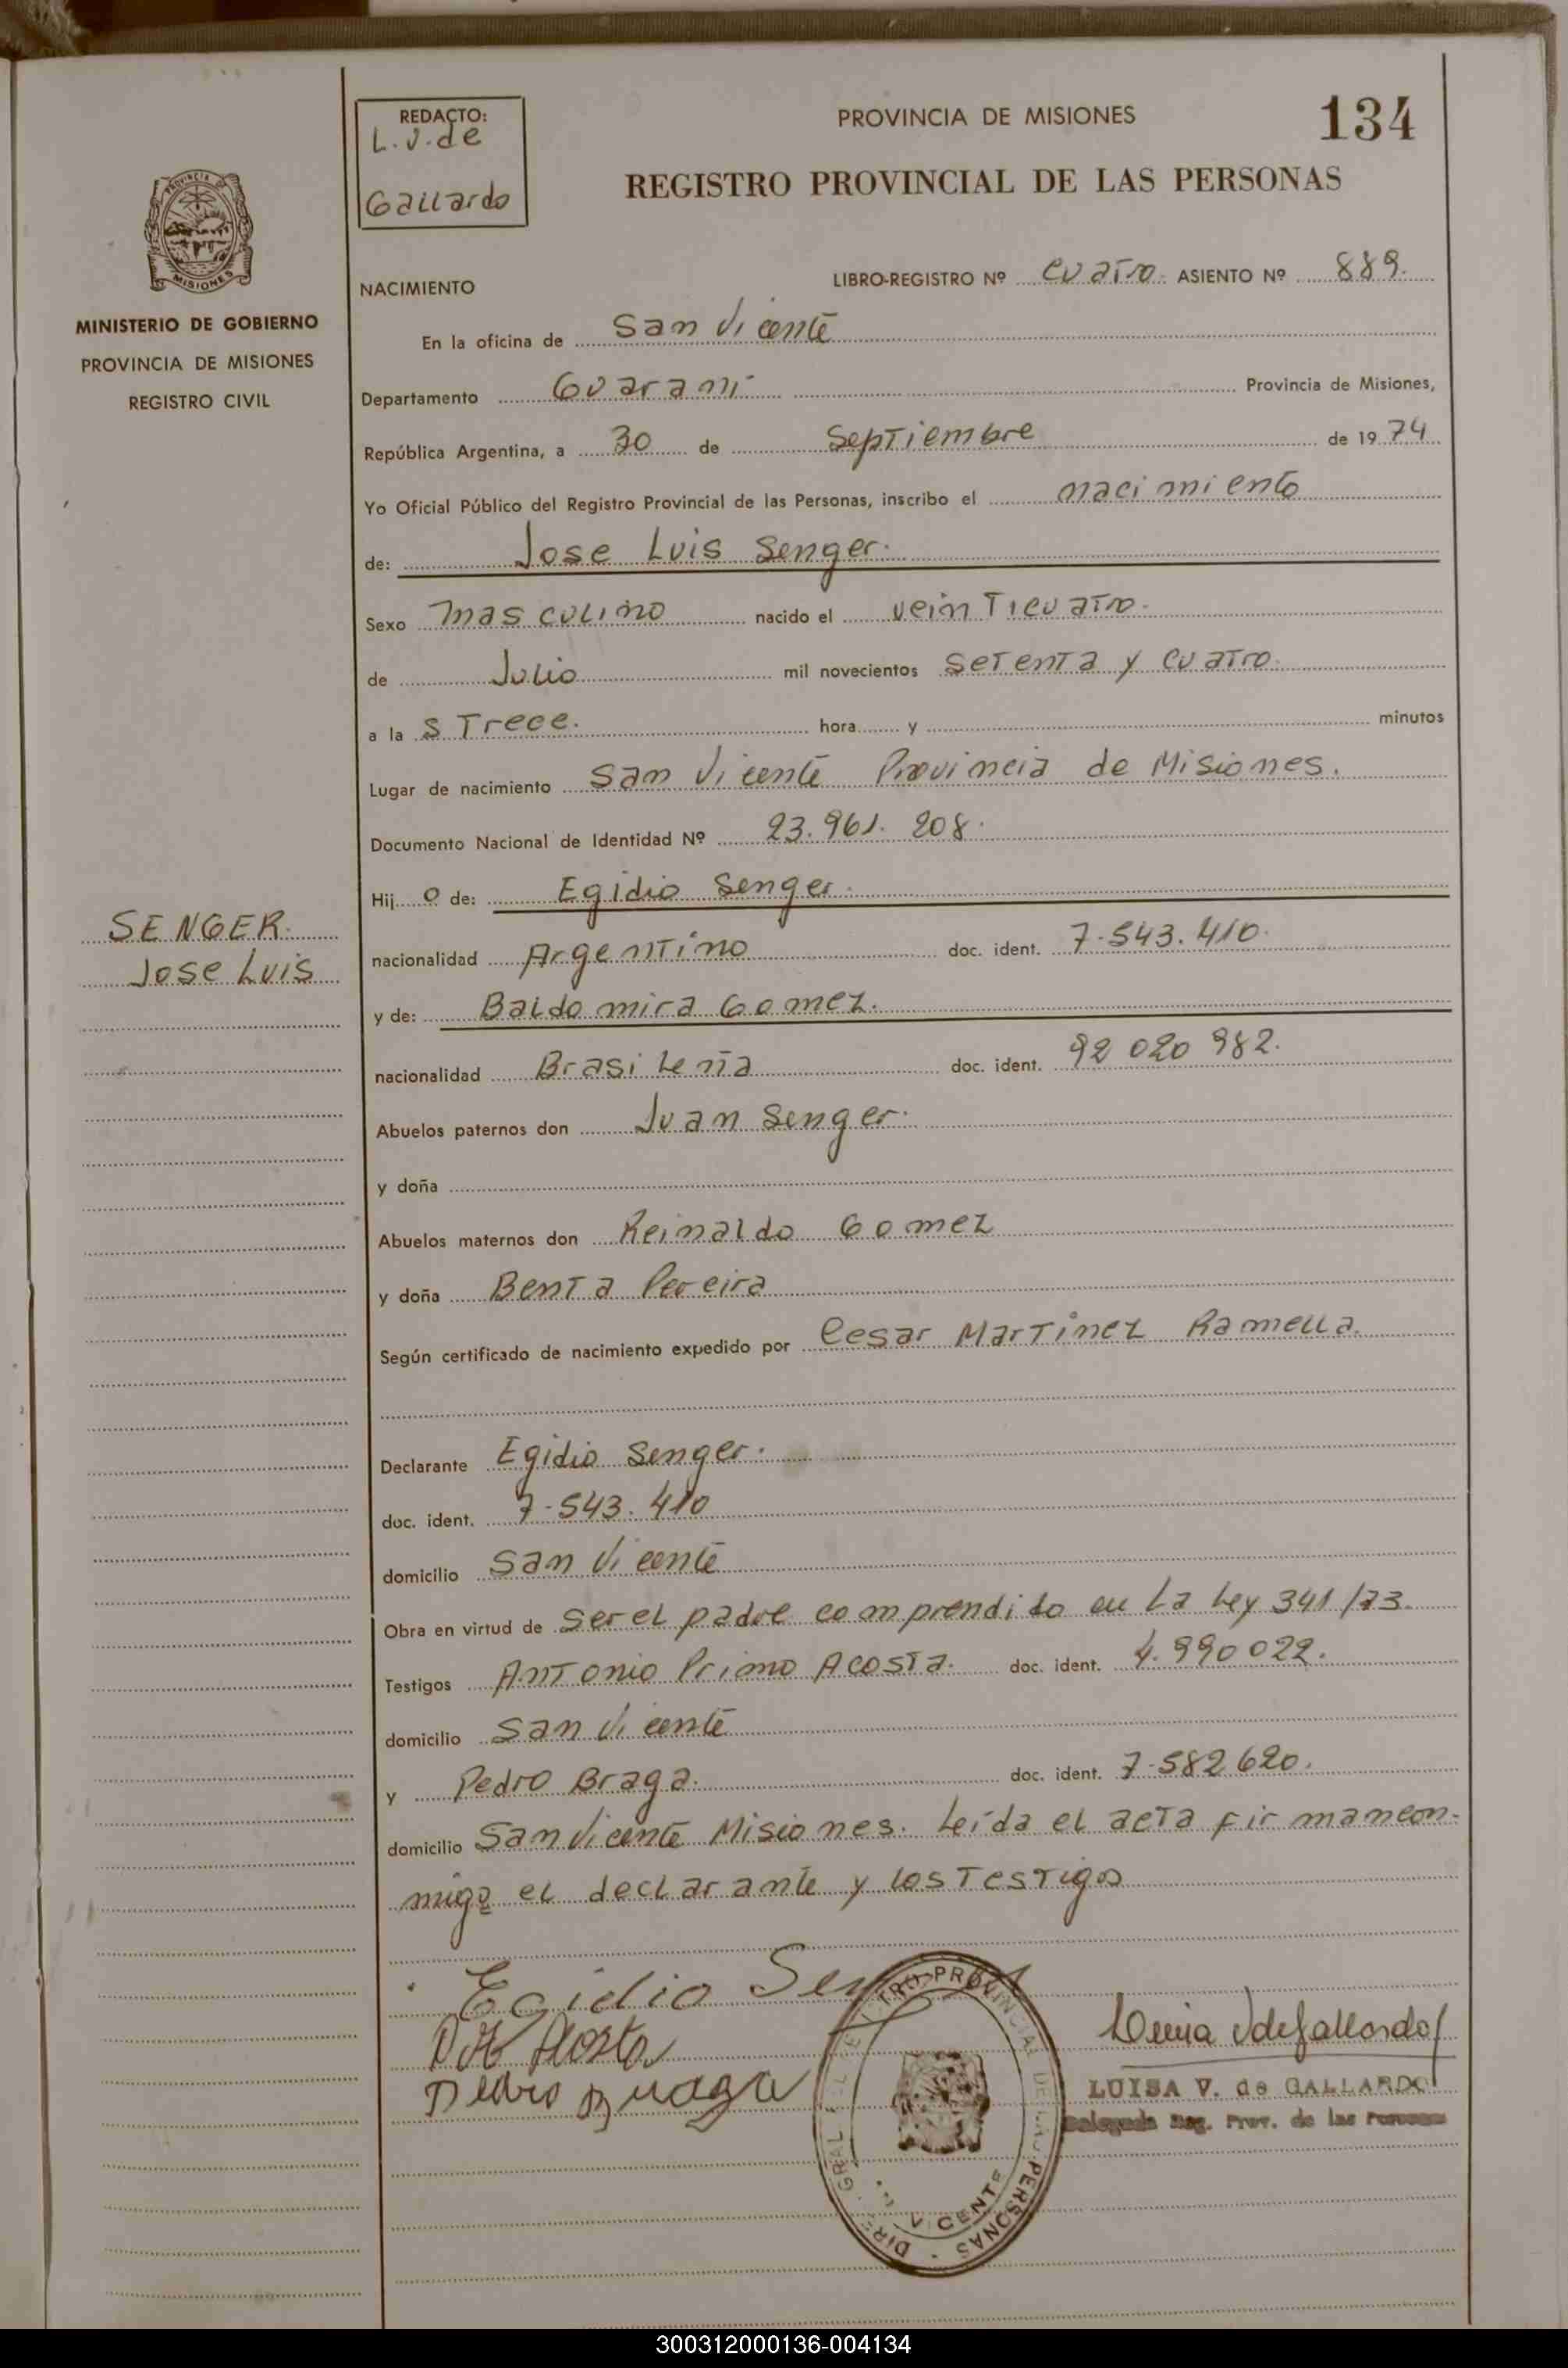 REDACTO:
L.V. de
Gallardo
PROVINCIA DE MISIONES
134
REGISTRO PROVINCIAL DE LAS PERSONAS
PROVINCIA DE
MISIONES
MINISTERIO DE GOBIERNO
PROVINCIA DE MISIONES
REGISTRO CIVIL
NACIMIENTO
LIBRO-REGISTRO Nº cuatro. ASIENTO Nº 889.
En la oficina de San Vicente
Departamento Guarani Provincia de Misiones,
República Argentina, a 30 de Septiembre de 1974
Yo Oficial Público del Registro Provincial de las Personas, inscribo el nacimiento
de: Jose Luis Senger.
Sexo masculino nacido el veinticuatro.
de Julio mil novecientos setenta y cuatro.
a las Trece. hora y minutos
Lugar de nacimiento San Vicente Provincia de Misiones.
Documento Nacional de Identidad Nº 23.961.208.
Hijo de: Egidio Senger.
SENGER.
Jose Luis
nacionalidad Argentino doc. ident. 7.543.410.
y de: Baldomira Gomez.
nacionalidad Brasileña doc. ident. 92 020 982.
Abuelos paternos don Juan Senger.
y doña
Abuelos maternos don Reinaldo Gomez
y doña Benta Pereira
Según certificado de nacimiento expedido por Cesar Martinez Ramella.
Declarante Egidio Senger.
doc. ident. 7.543.410
domicilio San Vicente
Obra en virtud de ser el padre comprendido en La Ley 341/73.
Testigos Antonio Primo Acosta. doc. ident. 4.990 022.
domicilio San Vicente
y Pedro Braga. doc. ident. 7.582 620.
domicilio San Vicente Misiones. Leída el acta firman con-
migo el declarante y los Testigos
Egidio Sen
Acosta
Pedro Braga
PERSONAS
VICENTE
LUISA V. de GALLARDO
Delegada Reg. Prov. de las Personas
300312000136-004134